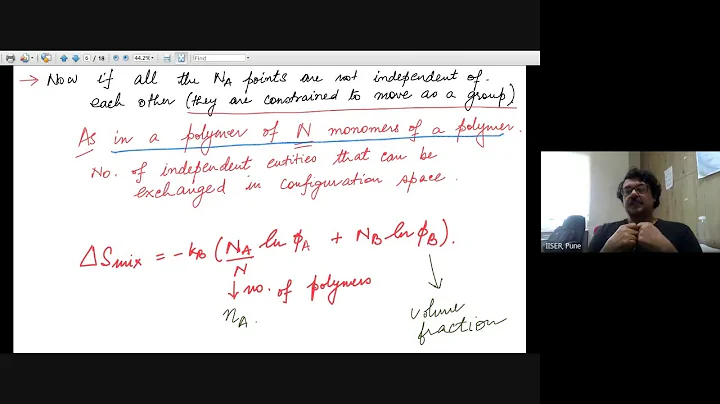 6 / 18
44.2%
Find
→ Now if all the N_A points are not independent of
each other (they are constrained to move as a group)
As in a polymer of N monomers of a polymer.
No. of independent entities that can be
exchanged in configuration space.
ΔS_mix = -k_B (N_A/N ln ϕ_A + N_B ln ϕ_B).
↓ no. of polymers
n_A.
volume
fraction
IISER, Pune